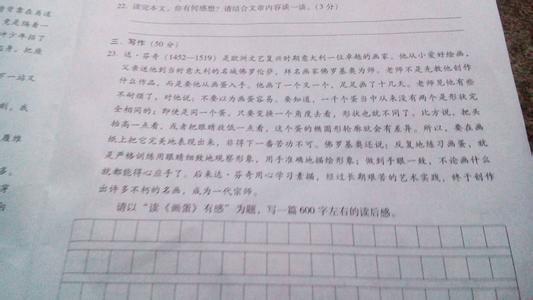 22. 读完本文，你有何感想？请结合文章内容谈一谈。（3分）
三、写作（50分）
23. 达·芬奇（1452—1519）是欧洲文艺复兴时期意大利一位卓越的画家。他从小爱好绘画，
父亲送他到当时意大利的名城佛罗伦萨，拜名画家佛罗基奥为师。老师不是先教他创作
什么作品，而是要他从画蛋入手。他画了一个又一个，足足画了十几天。老师见他有些
不耐烦了，对他说：不要以为画蛋容易，要知道，一千个蛋当中从来没有两个是形状完
全相同的；即使是同一个蛋，只要变换一个角度去看，形状也就不同了。比方说，把头
抬高一点看，或者把眼睛放低一点看，这个蛋的椭圆形轮廓就会有差异。所以，要在画
纸上把它完美地表现出来，非得下一番苦功不可。佛罗基奥还说：反复地练习画蛋，就
是严格训练用眼睛细致地观察形象，用手准确地描绘形象；做到手眼一致，不论画什么
就都能得心应手了。后来达·芬奇用心学习素描，经过长期艰苦的艺术实践，终于创作
出许多不朽的名画，成为一代宗师。
请以“读《画蛋》有感”为题，写一篇600字左右的读后感。